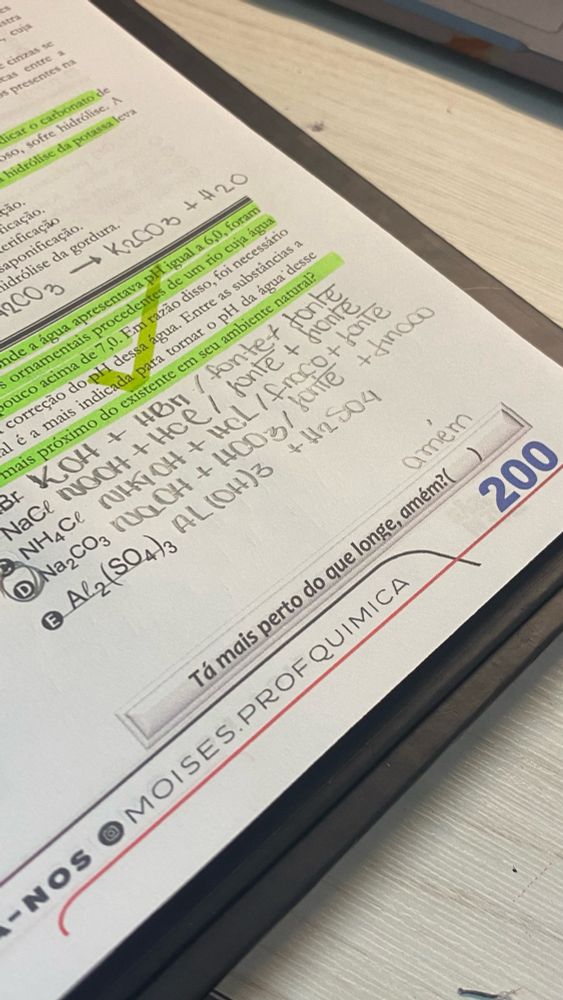 cuja
e cinzas se
cas entre a
os presentes na
dicar o carbonato de
oso, sofre hidrólise. A
a hidrólise da potassa leva
ção.
ficação.
erificação
saponificação.
hidrólise da gordura.
2CO3 → K2CO3 + H2O
nde a água apresentava pH igual a 6,0, foram
s ornamentais procedentes de um rio cuja água
pouco acima de 7,0. Em razão disso, foi necessário
a correção do pH dessa água. Entre as substâncias a
al é a mais indicada para tornar o pH da água desse
mais próximo do existente em seu ambiente natural?
Br KOH + HBr / forte + forte
NaCl NaOH + HCl / forte + forte
NH₄Cl NH4OH + HCl / fraco + forte
D Na₂CO₃ NaOH + HCO3 / forte + fraco
E Al₂(SO₄)₃ AL(OH)3 + H2SO4
amém
Tá mais perto do que longe, amém?( )
200
A-NOS @MOISES.PROFQUIMICA